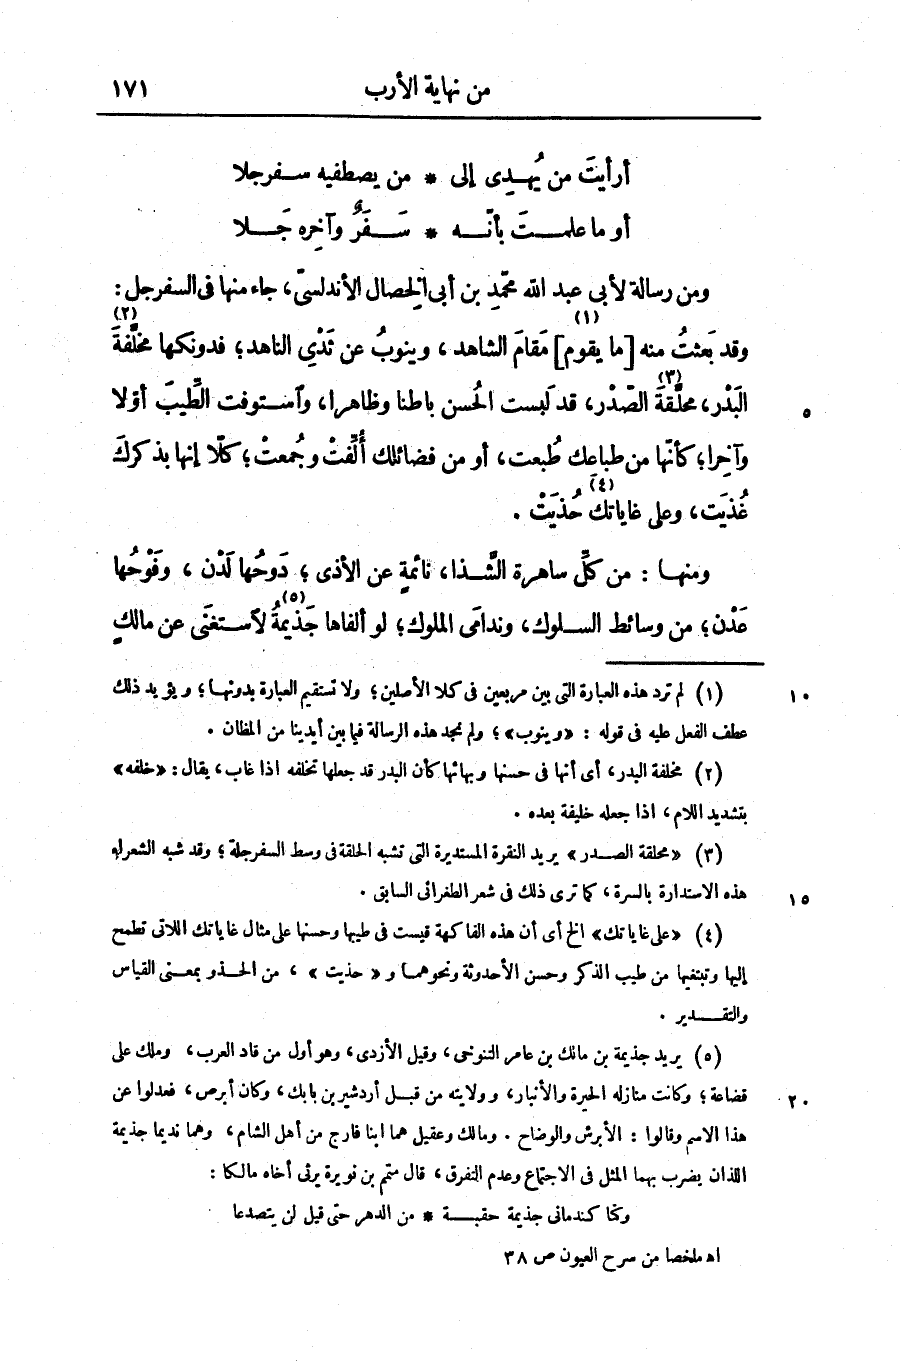 من نهاية الأرب ١٧١
أرأيتَ من يُهدِى إلى * من يصطفيه سفرجلا
أو ما علمتَ بأنّه * سَفَرٌ وآخِره جَلا
ومن رسالة لأبى عبد الله محمّدِ بن أبى الخِصال الأندلسىّ، جاء منها فى السفرجل:
وقد بَعثتُ منه [ما يقوم](١) مَقامَ الشاهد، وينوبُ عن ثَدْىِ الناهد؛ فدونكها مخلَّفةَ(٢)
البَدْر، محلَّقةَ(٣) الصّدْر، قد لَبِست الحُسن باطنا وظاهرا، وٱستوفت الطِّيبَ أوّلا ٥
وآخِرا؛ كأنّها من طباعك طُبعت، أو من فضائلك أُلِّفتْ وجُمعتْ؛ كلّا إنها بذكركَ
غُذيَت، وعلى غاياتك(٤) حُذيَتْ .
ومنها : من كلِّ ساهرة الشَّذا، نائمةٍ عن الأذى؛ دَوحُها لَدْن، وفَوْحُها
عَدْن؛ من وسائط السلوك، وندامَى الملوك؛ لو ألفاها جَذيمةُ(٥) لَٱستغنَى عن مالكٍ
(١) لم ترد هذه العبارة التى بين مربعين فى كلا الأصلين؛ ولا تستقيم العبارة بدونها؛ ويؤيد ذلك ١٠
عطف الفعل عليه فى قوله : «وينوب»؛ ولم نجد هذه الرسالة فيما بين أيدينا من المظان .
(٢) مخلفة البدر، أى أنها فى حسنها وبهائها كأن البدر قد جعلها تخلفه اذا غاب، يقال: «خلفه»
بتشديد اللام، اذا جعله خليفة بعده .
(٣) «محلقة الصدر» يريد النقرة المستديرة التى تشبه الحلقة فى وسط السفرجلة؛ وقد شبه الشعراء
هذه الاستدارة بالسرة، كما ترى ذلك فى شعر الطغرائى السابق . ١٥
(٤) «على غاياتك» الخ أى أن هذه الفاكهة قيست فى طيبها وحسنها على مثال غاياتك اللاتى تطمح
إليها وتبتغيها من طيب الذكر وحسن الأحدوثة ونحوهما و«حذيت»، من الحذو بمعنى القياس
والتقدير .
(٥) يريد جذيمة بن مالك بن عامر التنوخى، وقيل الأزدى، وهو أول من قاد العرب، وملك على
قضاعة؛ وكانت منازله الحيرة والأنبار، وولايته من قبل أردشير بن بابك، وكان أبرص، فعدلوا عن ٢٠
هذا الاسم وقالوا : الأبرش والوضاح . ومالك وعقيل هما ابنا فارج من أهل الشام، وهما نديما جذيمة
اللذان يضرب بهما المثل فى الاجتماع وعدم التفرق، قال متمم بن نويرة يرثى أخاه مالكا :
وكنا كندمانى جذيمة حقبة * من الدهر حتى قيل لن يتصدعا
اه ملخصا من سرح العيون ص ٣٨